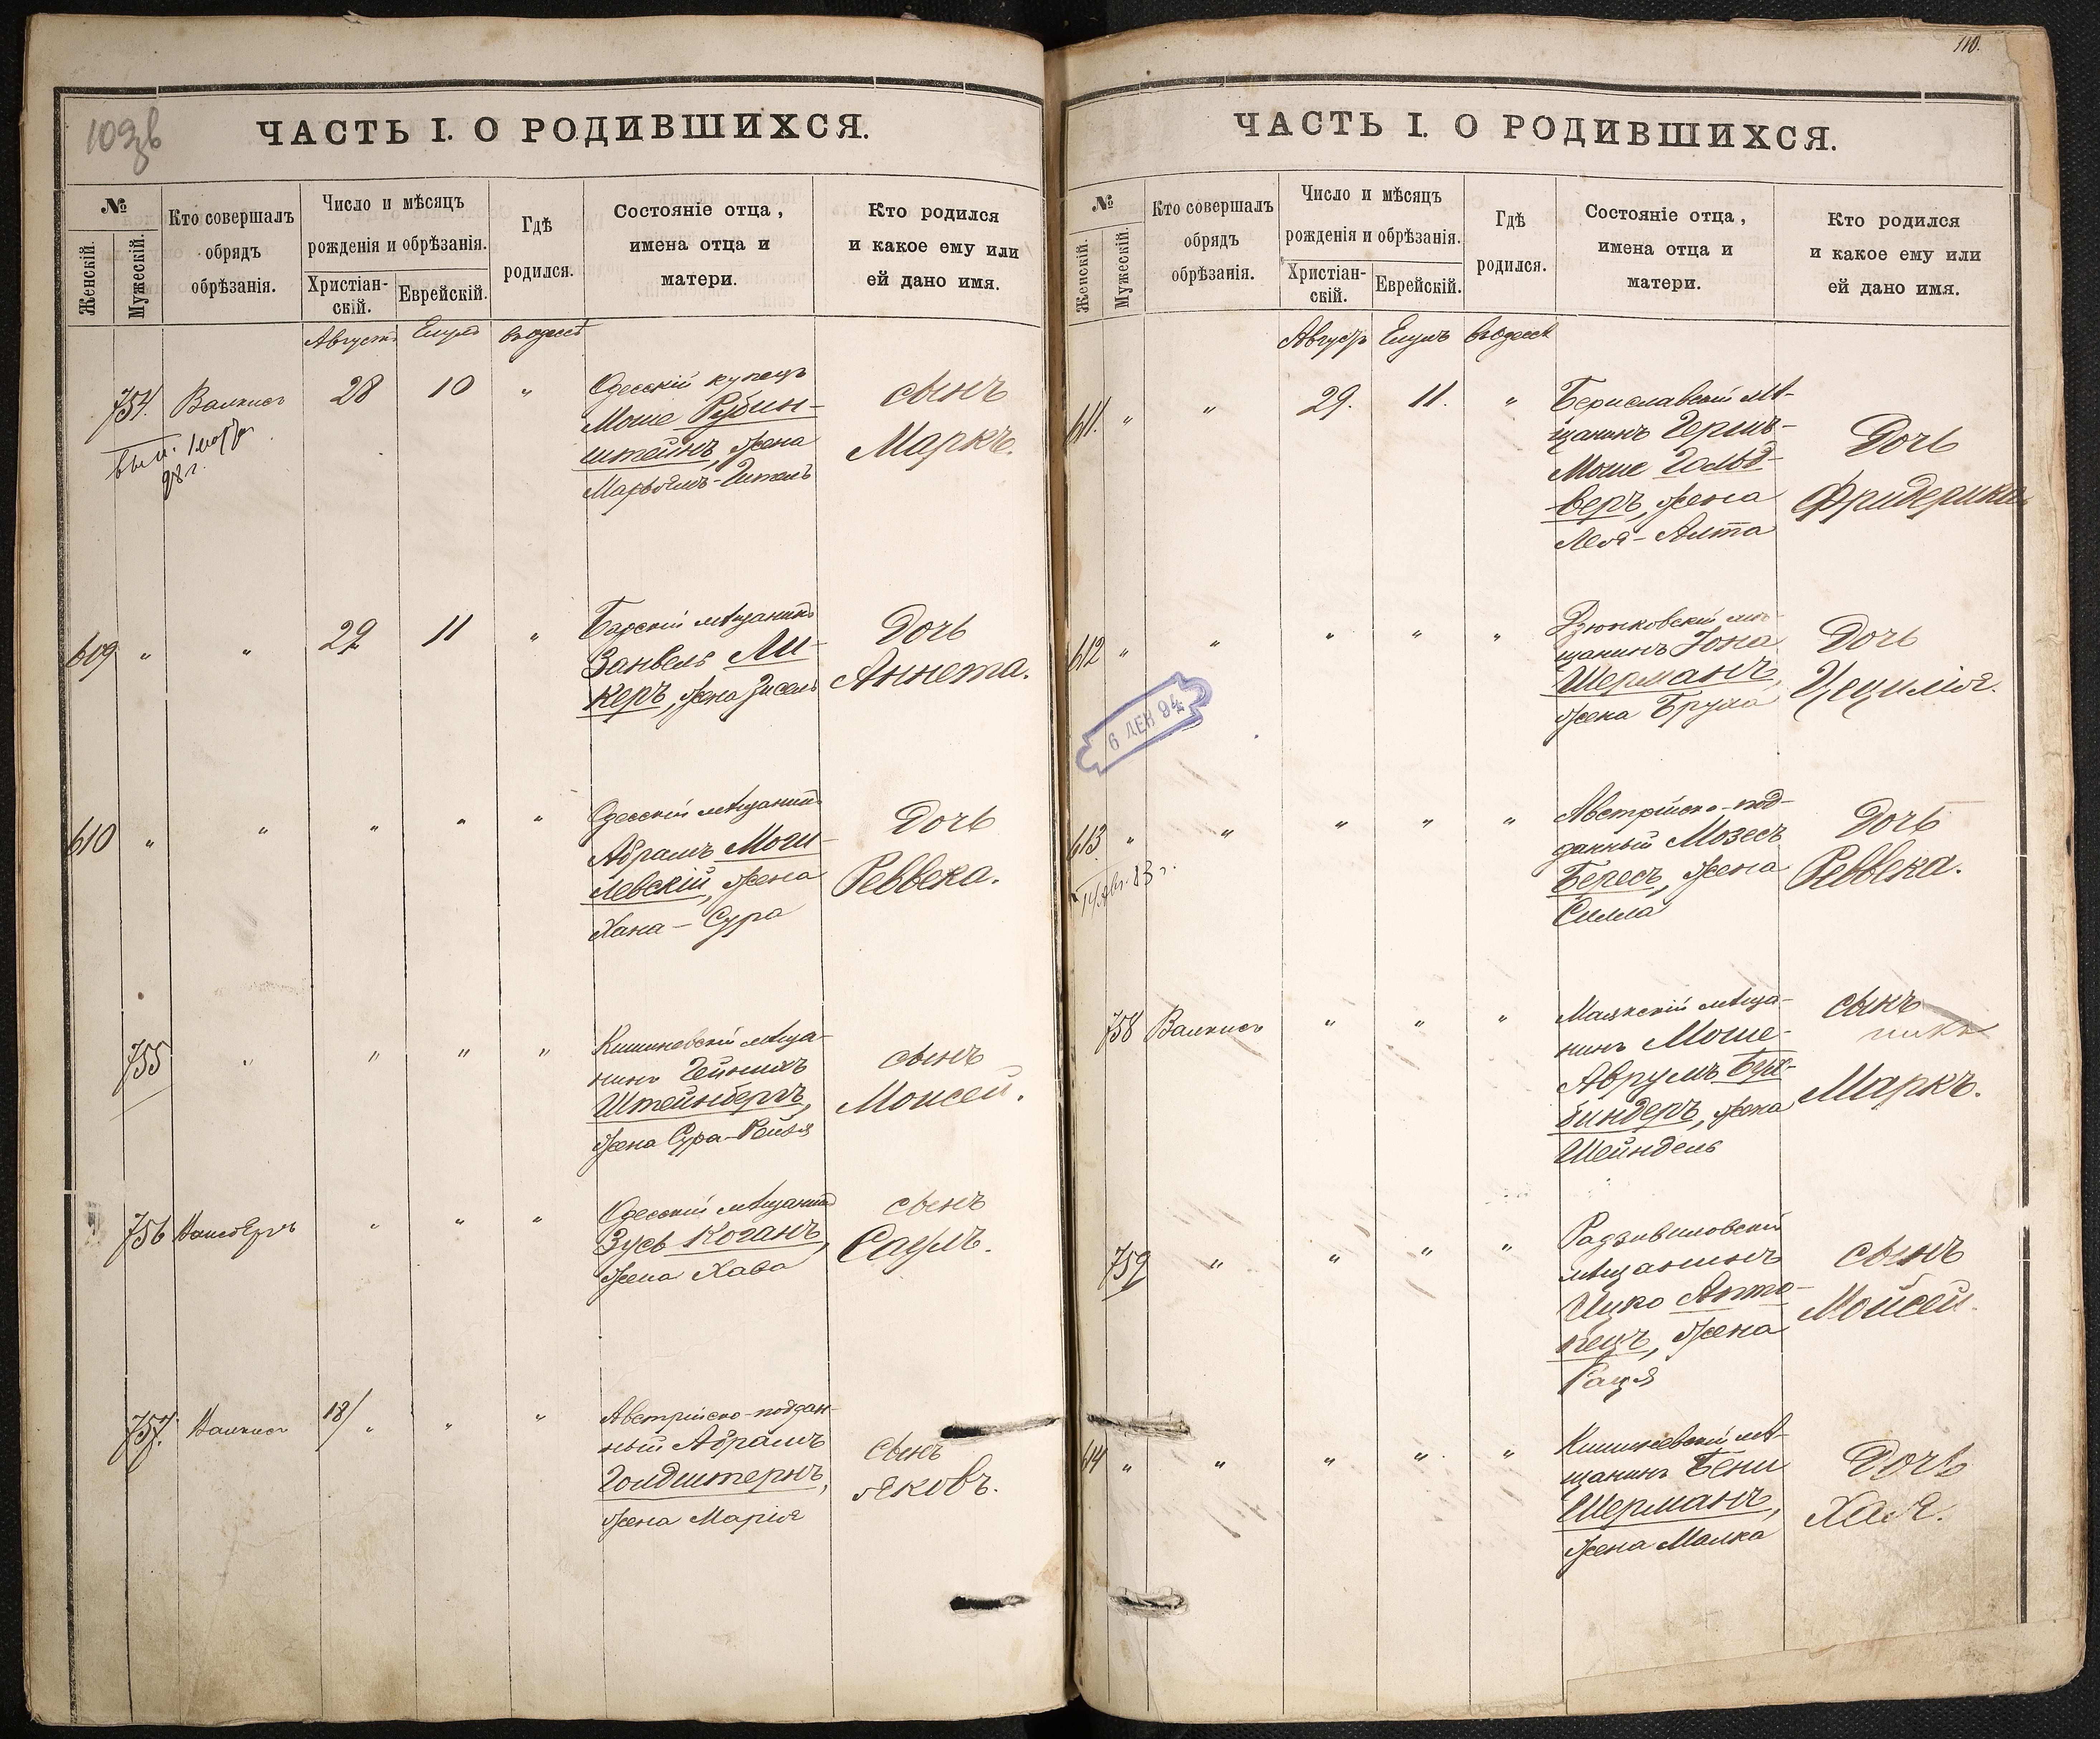 103в
ЧАСТЬ I. О РОДИВШИХСЯ.
№
Женскій.
Мужескій.
Кто совершалъ
обрядъ
обрѣзанія.
Число и мѣсяцъ
рожденія и обрѣзанія.
Христіан-
скій.
Еврейскій.
Гдѣ
родился.
Состояніе отца,
имена отца и
матери.
Кто родился
и какое ему или
ей дано имя.
Августъ Елулъ въ Одессѣ
754. Валкисъ 28 10 "
Одесскій купецъ
Моше Рубин-
штейнъ, жена
сынъ
Маркъ.
609 " " 29 11 "
Барскій мѣщанинъ
Занвель Ли-
керъ, жена Зисель
Дочь
Аннета.
610 " " " " "
Одесскій мѣщанинъ
Абрамъ Моги-
левскій, жена
Хана-Сура
Дочь
Реввека.
755 " " " "
Кишиневскій мѣща-
нинъ Гейнихъ
Штейнбергъ,
жена Сура-Рейзя
сынъ
Моисей.
756 " " "
Одесскій мѣщанинъ
Зусь Коганъ,
жена Хава
сынъ
Саулъ.
757. Валкисъ 18/" " "
Австрійско-поддан-
ный Абрамъ
Голдштернъ,
жена Марія
Сынъ
Яковъ.
110.
ЧАСТЬ I. О РОДИВШИХСЯ.
№
Женскій.
Мужескій.
Кто совершалъ
обрядъ
обрѣзанія.
Число и мѣсяцъ
рожденія и обрѣзанія.
Христіан-
скій.
Еврейскій.
Гдѣ
родился.
Состояніе отца,
имена отца и
матери.
Кто родился
и какое ему или
ей дано имя.
Августъ Елулъ въ Одессѣ
611. " " 29. 11. "
Бериславскій мѣ-
щанинъ Гершъ-
Моше Гольд-
веръ, жена
Лея-Алта
Дочь
Фридерика
612 " " " " "
щанинъ Іона
Шерманъ,
жена Бруха
Дочь
Цецилія.
6 ДЕК 94
613. " " " " "
Австрійско-под-
данный Мозесъ
Бересъ, жена
Силла
Дочь
Реввека.
758 Валкисъ " " "
Маякскій мѣща-
нинъ Моше-
Аврумъ Бух-
биндеръ, жена
Шейндель
сынъ
Маркъ.
759 " " " "
Радзивиловскій
мѣщанинъ
Ицко Апто-
кецъ, жена
сынъ
Мойсей.
614 " " " " "
Кишиневскій мѣ-
щанинъ Бени
Шерманъ,
жена Малка
Дочь
Хая.